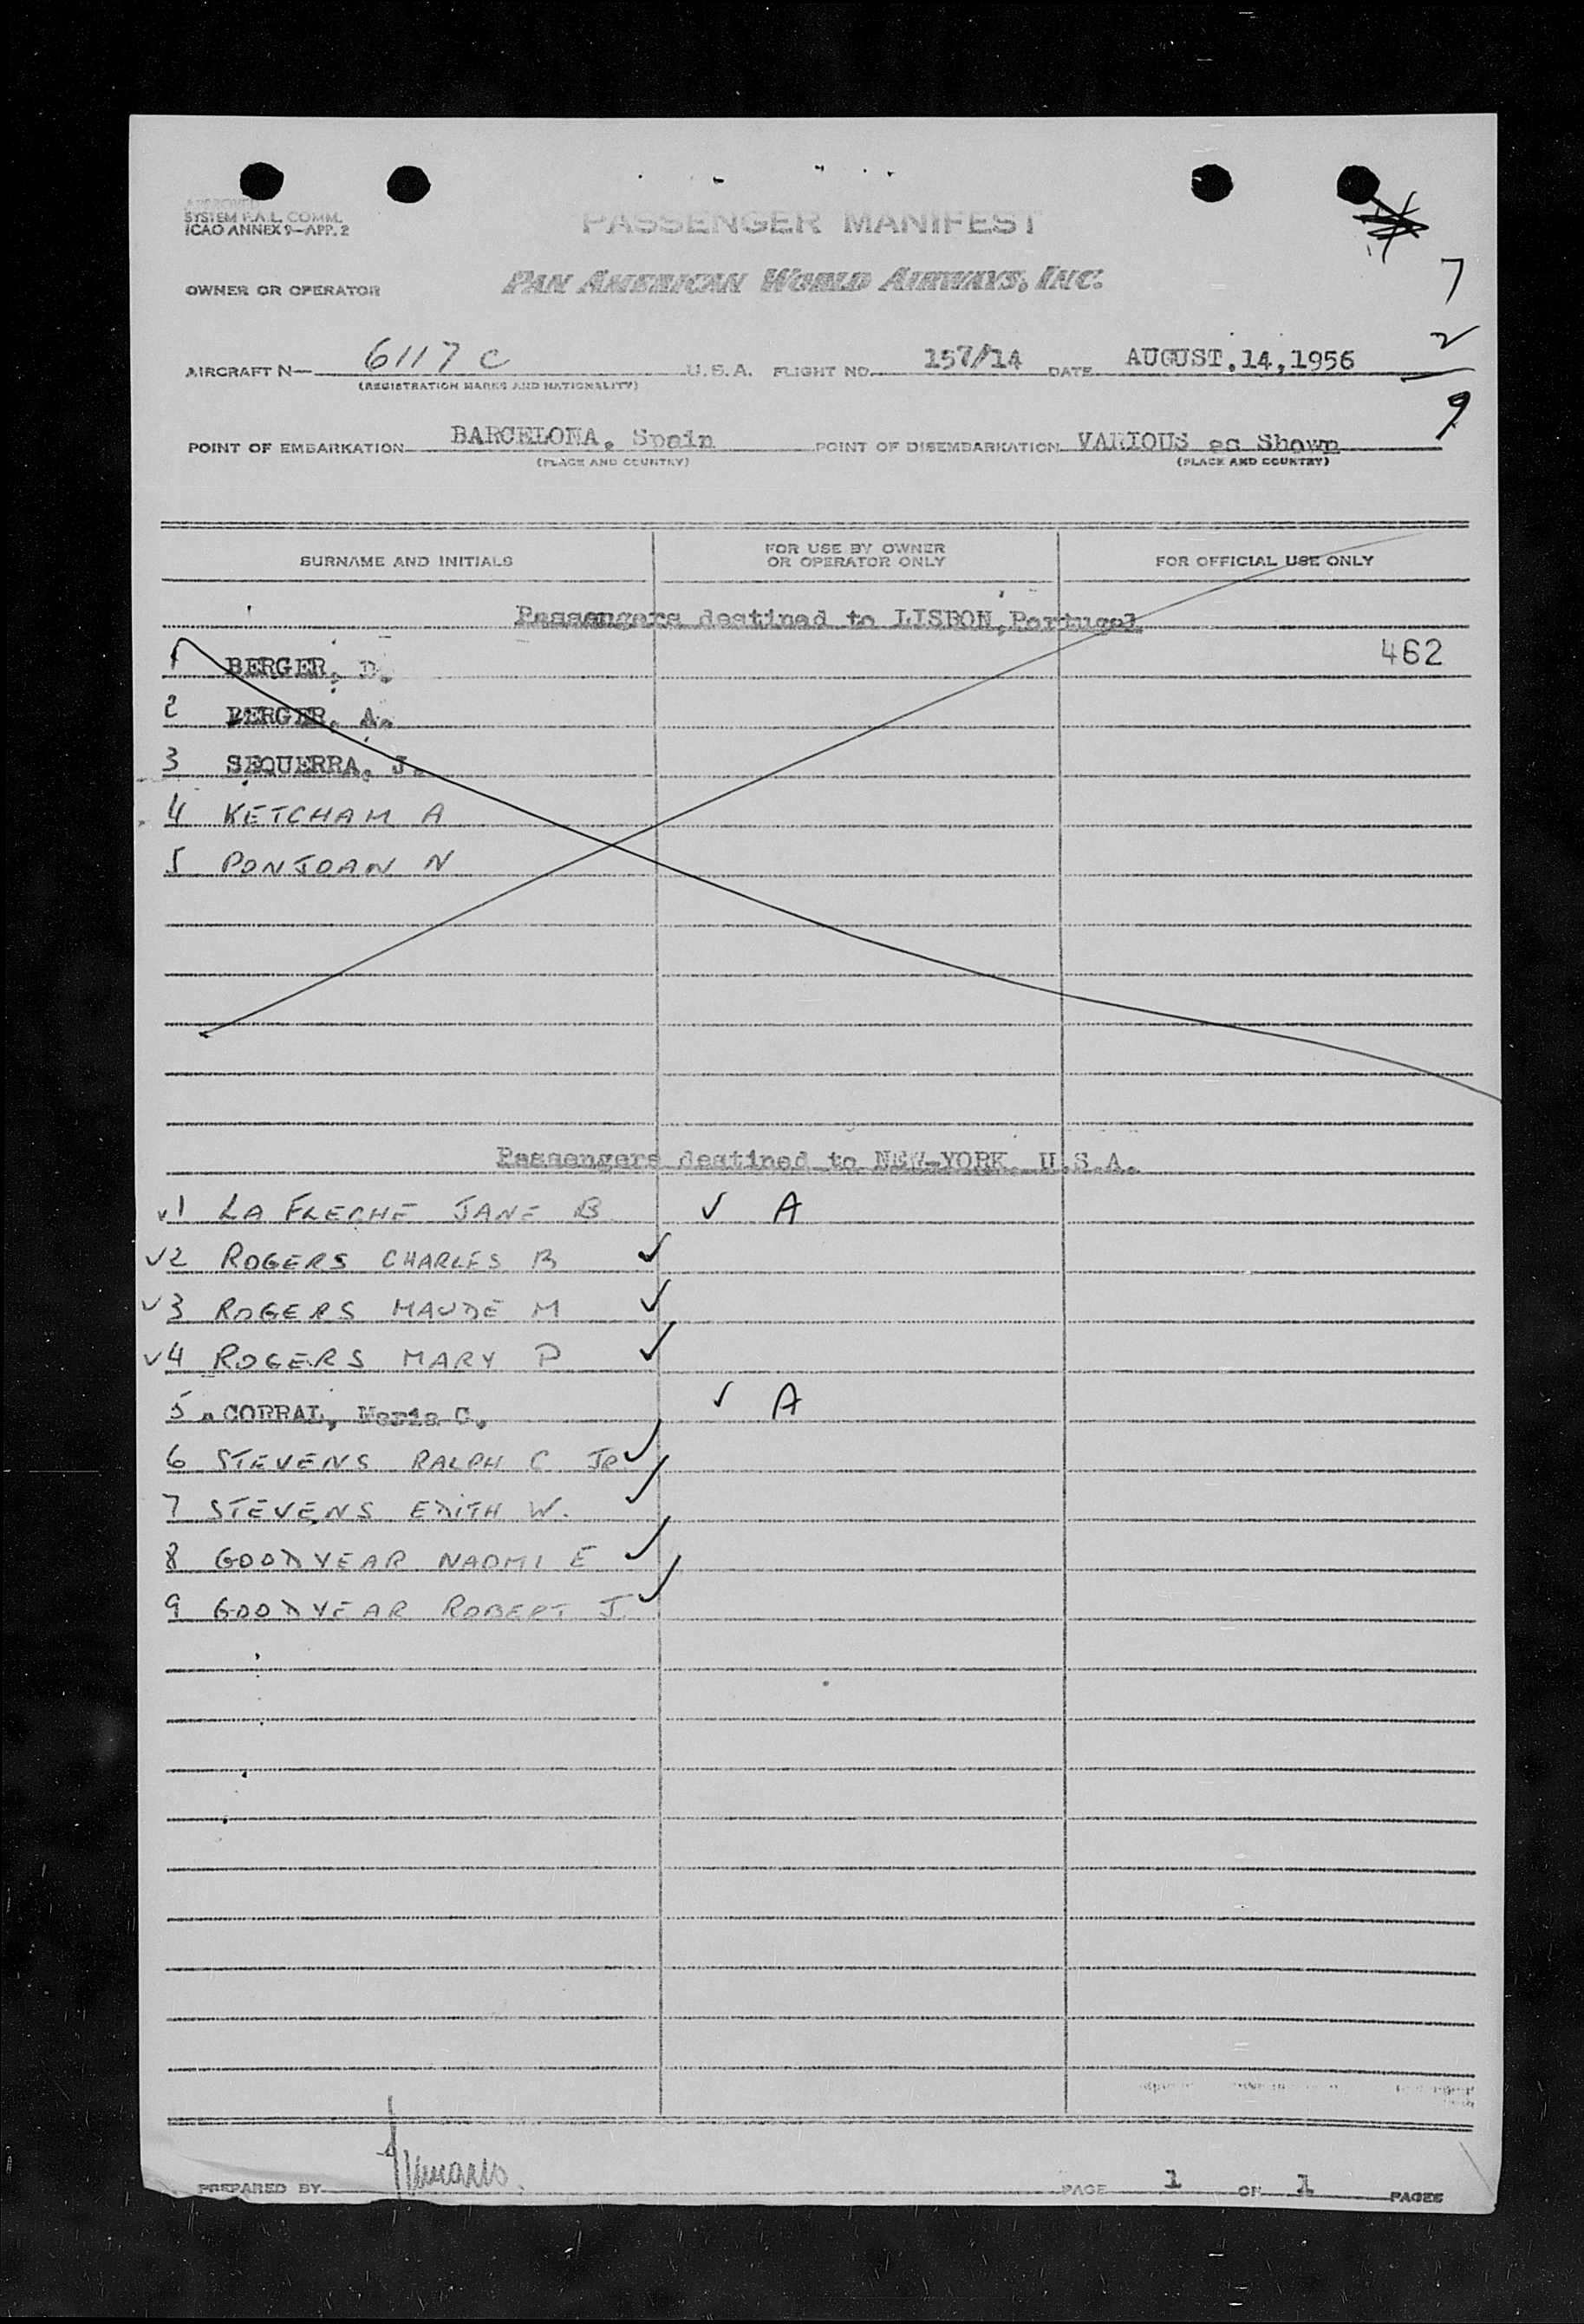 APPROVED
SYSTEM F.A.L. COMM.
ICAO ANNEX 9-APP. 2
PASSENGER MANIFEST
OWNER OR OPERATOR PAN AMERICAN WORLD AIRWAYS, INC.
7
2
9
AIRCRAFT N- 6117 C U.S.A. FLIGHT NO. 157/14 DATE AUGUST.14,1956
(REGISTRATION MARKS AND NATIONALITY)
POINT OF EMBARKATION BARCELONA, Spain POINT OF DISEMBARKATION VARIOUS as Shown
(PLACE AND COUNTRY) (PLACE AND COUNTRY)
SURNAME AND INITIALS FOR USE BY OWNER OR OPERATOR ONLY FOR OFFICIAL USE ONLY
Passengers destined to LISBON, Portugal
462
1 BERGER, D.
2 BERGER, A.
3 SEQUERRA, J.
4 KETCHAM A
5 PONJOAN N
Passengers destined to NEW-YORK, U.S.A.
✓1 LA FLECHE JANE B ✓ A
✓2 ROGERS CHARLES B ✓
✓3 ROGERS MAUDE M ✓
✓4 ROGERS MARY P ✓
5 CORRAL, Maria C. ✓ A
6 STEVENS RALPH C JR ✓
7 STEVENS EDITH W. ✓
8 GOODYEAR NAOMI E ✓
9 GOODYEAR ROBERT J. ✓
PREPARED BY PAGE 1 OF 1 PAGES